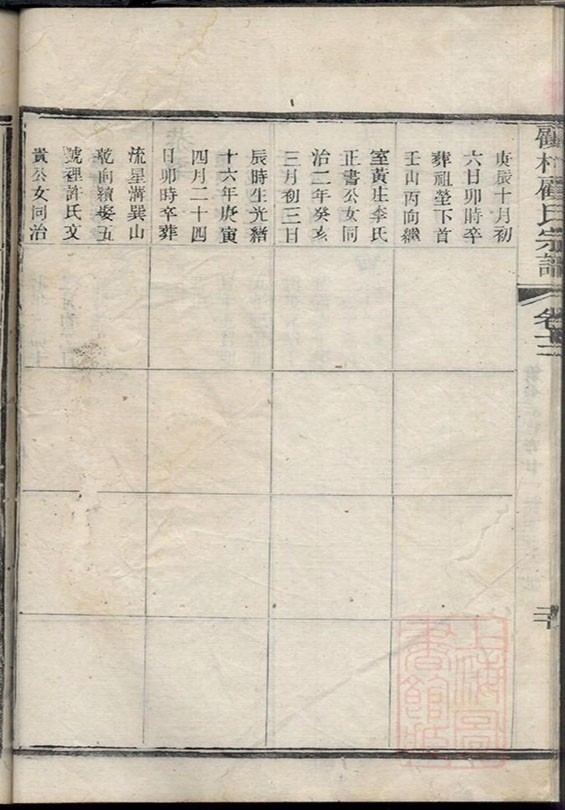 顧村顧氏宗譜
卷十二
庚辰十月初
六日卯時卒
葬祖塋下首
壬山丙向繼
室黃庄李氏
正書公女同
治二年癸亥
三月初三日
辰時生光緒
十六年庚寅
四月二十四
日卯時卒葬
流星溝巽山
乾向續娶五
號裡許氏文
貴公女同治